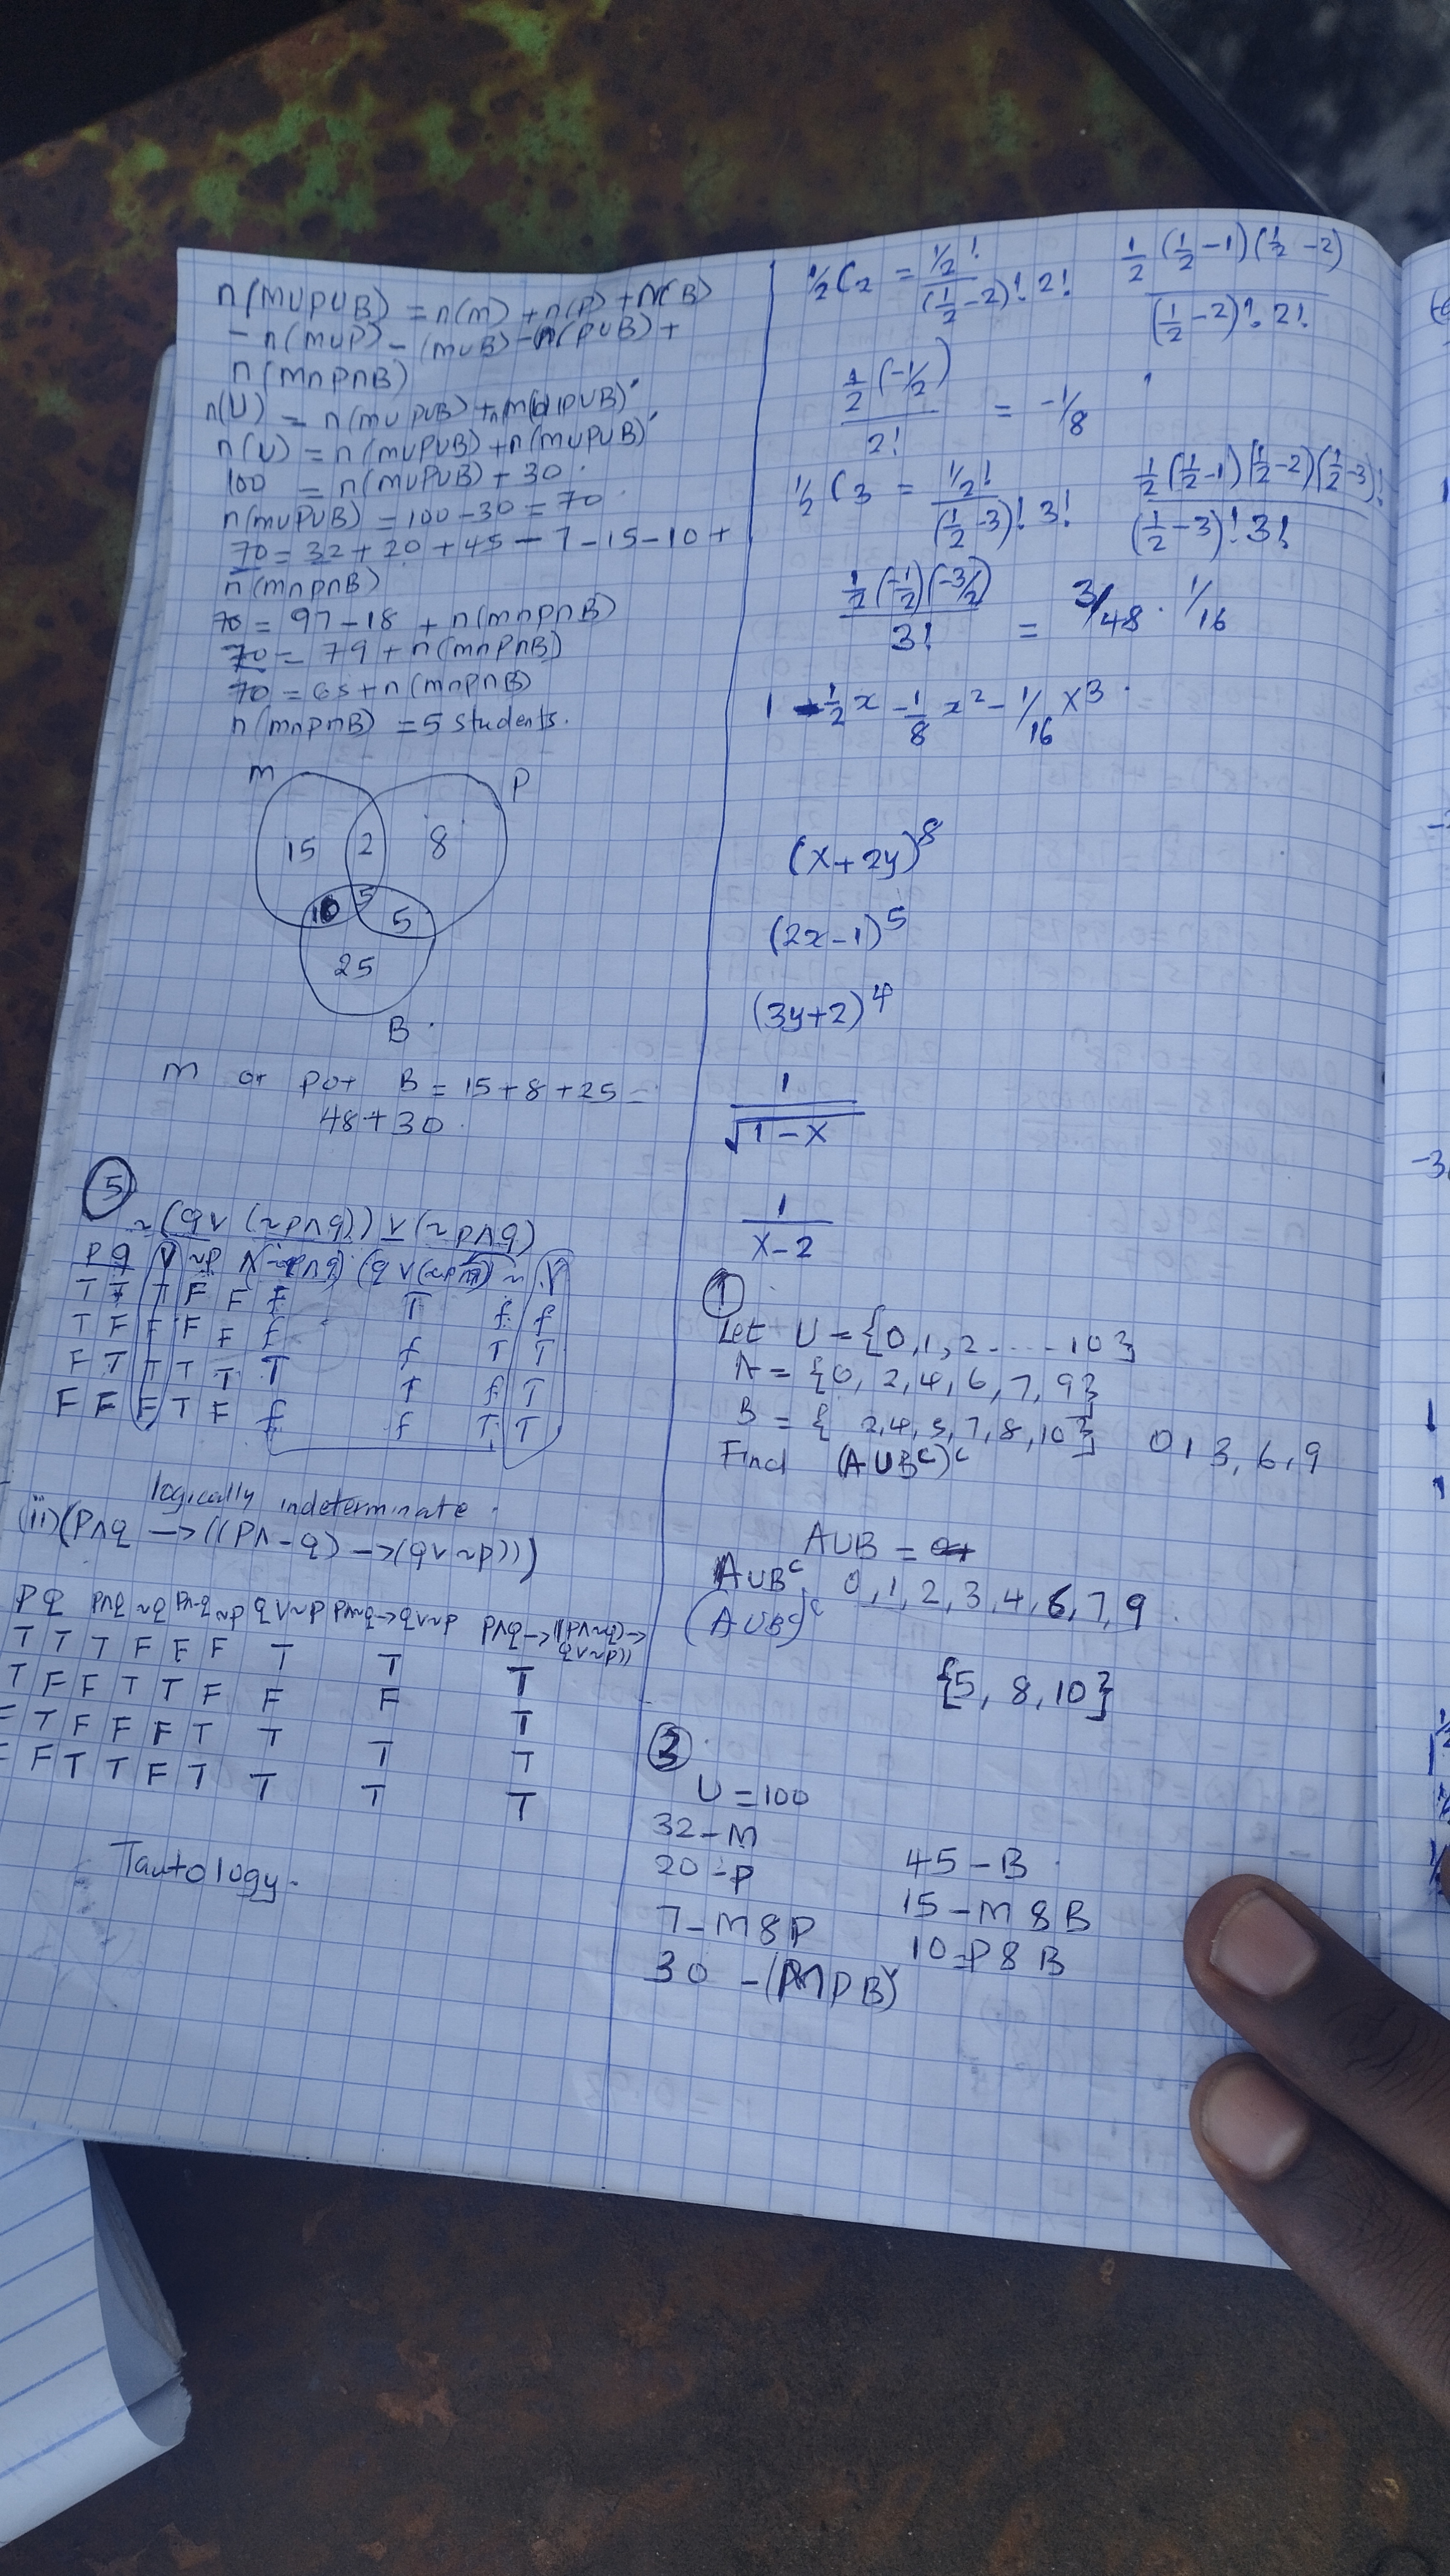 n(MUPUB) = n(m) + n(P) + n(B)
- n(MUP) - (MUB) - n(PUB) +
n(m∩P∩B)
n(U) = n(MUPUB) + n(MUPUB)'
n(U) = n(MUPUB) + n(MUPUB)'
100 = n(MUPUB) + 30.
n(MUPUB) = 100 - 30 = 70.
70 = 32 + 20 + 45 - 7 - 15 - 10 +
n(m∩P∩B)
70 = 97 - 18 + n(m∩P∩B)
70 = 79 + n(m∩P∩B)
70 = 65 + n(m∩P∩B)
n(m∩P∩B) = 5 students.
m P
15 2 8
10 5 5
25
B.
m or P or B = 15 + 8 + 25 =
48 + 30.
⑤
~(q∨(~p∧q)) ∨ (~p∧q)
P q ∨ ~p ∧ (~p∧q) (q∨(~p∧q)) ~ ∨
T T T F F F T f f
T F F F F f f T T
F T T T T T T f T
F F F T F f f T T
logically indeterminate.
(ii) (P∧q → ((P∧~q) → (q∨~p)))
P q P∧q ~q P∧~q ~p q∨~p P∧~q→q∨~p P∧q→((P∧~q)→
q∨~p))
T T T F F F T T T
T F F T T F F F T
F T F F F T T T T
F F T T F T T T T
Tautology.
½C2 = ½! / (½-2)! 2! ½(½-1)(½-2) / (½-2)! 2!
½(-½) / 2! = -1/8
½C3 = ½! / (½-3)! 3! ½(½-1)(½-2)(½-3)! / (½-3)! 3!
½(-½)(-3/2) / 3! = 3/48. 1/16
1 - ½x - 1/8 x² - 1/16 x³.
(x+2y)⁸
(2x-1)⁵
(3y+2)⁴
1 / √1-x
1 / x-2
①
Let U = {0,1,2.....10}
A = {0, 2, 4, 6, 7, 9}
B = { 2,4,5,7,8,10} 0 1 3, 6, 9
Find (AUBᶜ)ᶜ
AUB =
AUBᶜ 0, 1, 2, 3, 4, 6, 7, 9.
(AUBᶜ)ᶜ
{5, 8, 10}
③
U = 100
32 - M
20 - P 45 - B
7 - M & P 15 - M & B
30 - (MPB)' 10 = P & B